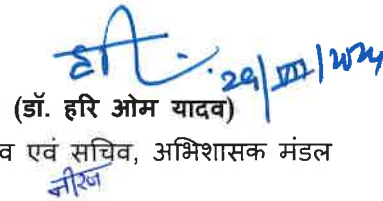 हरि 29/VIII/2024
(डॉ. हरि ओम यादव)
व एवं सचिव, अभिशासक मंडल
नीरज